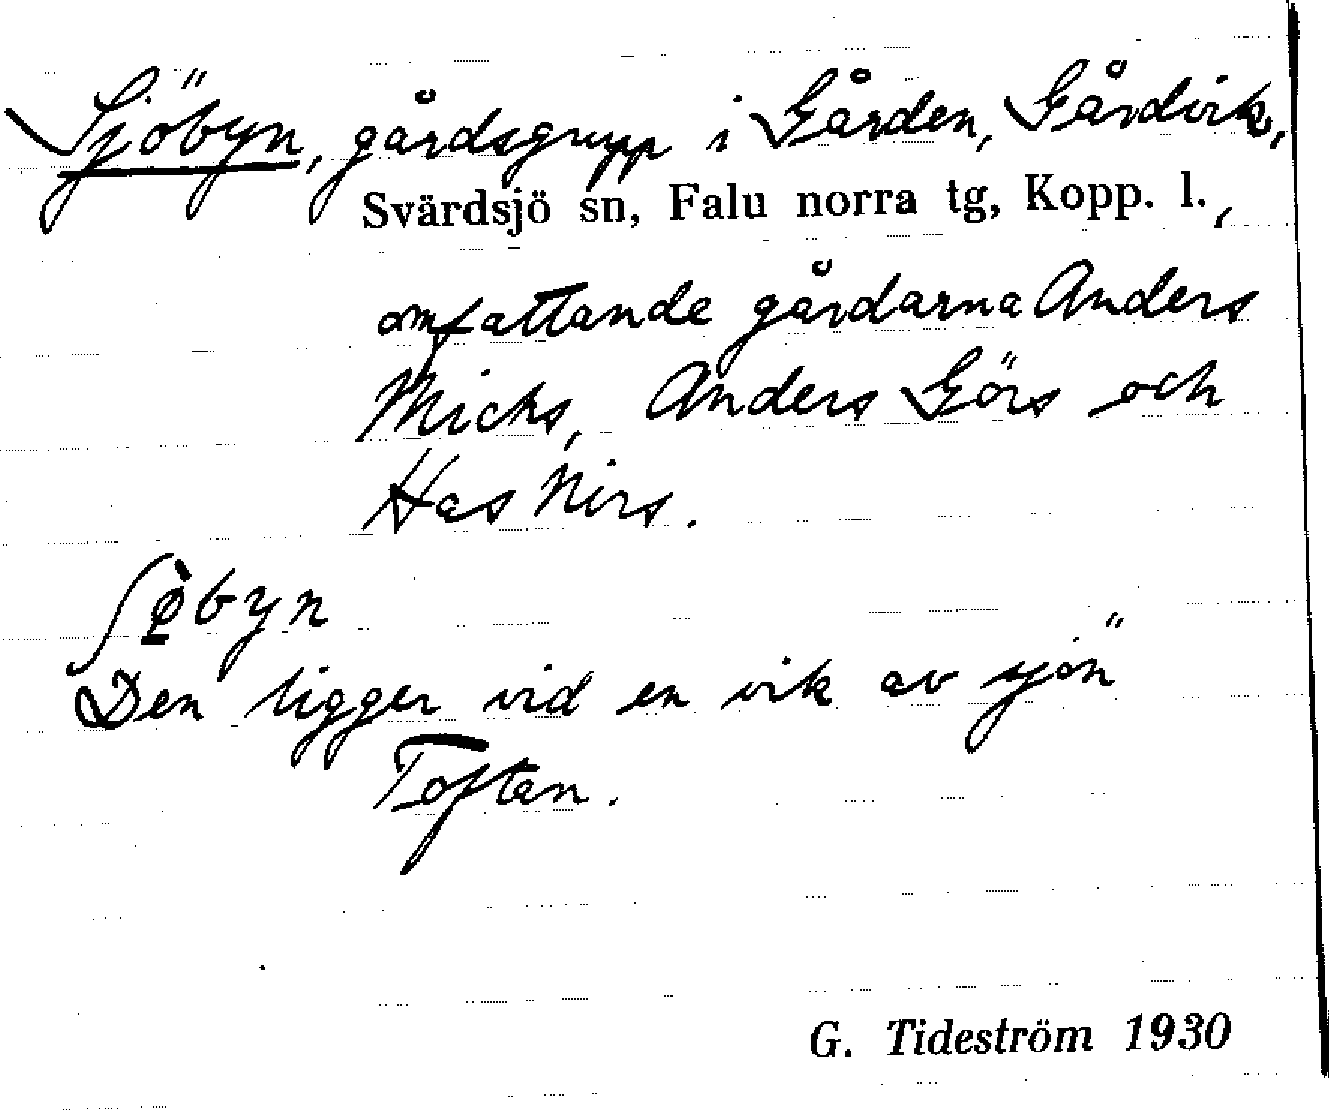 Sjöbyn, gårdsgrupp i Gården, Gårdvik,
Svärdsjö sn, Falu norra tg, Kopp. l.,
omfattande gårdarna Anders
Michs, Anders Görs och
Has Nirs.
Den ligger vid en vik av sjön
Toftan.
G. Tideström 1930